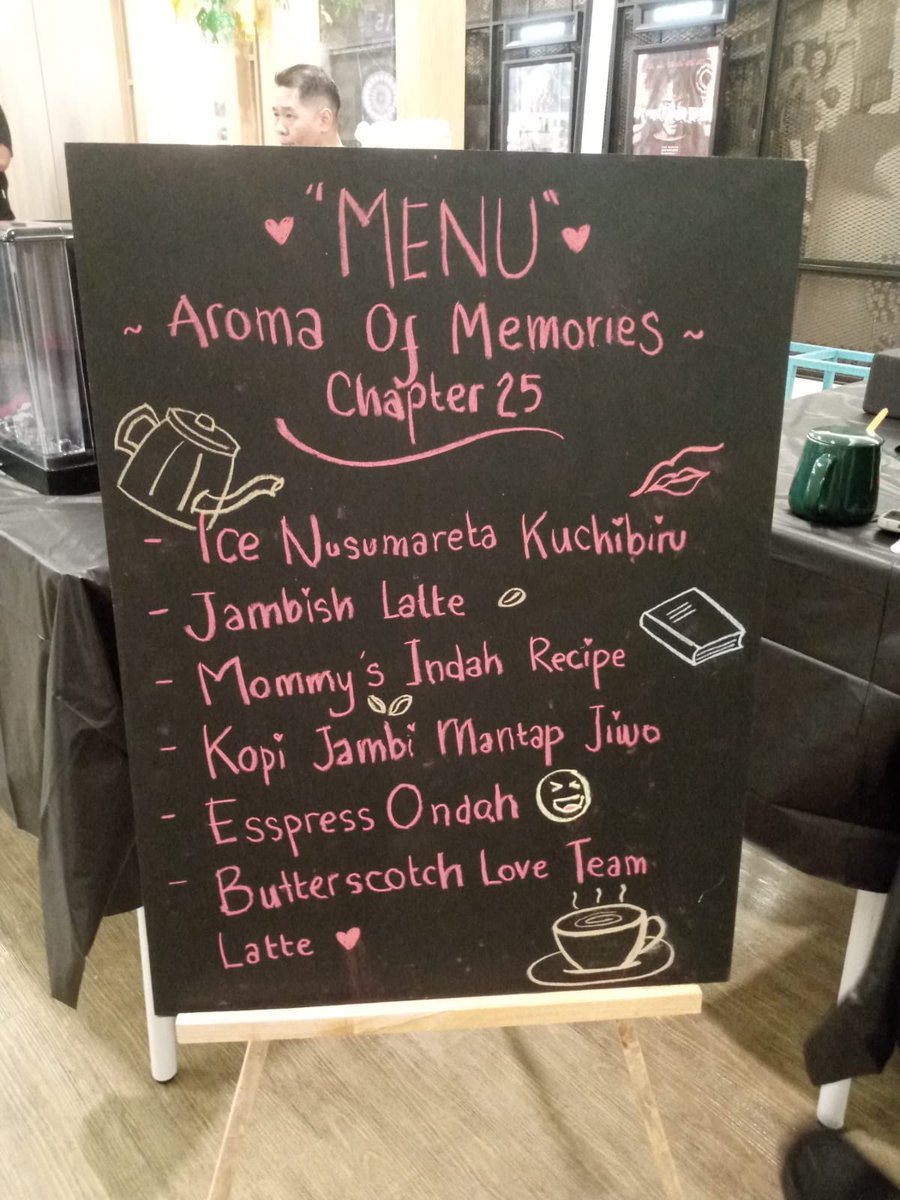 "MENU"
~ Aroma Of Memories ~
Chapter 25
- Ice Nusumareta Kuchibiru
- Jambish Latte
- Mommy's Indah Recipe
- Kopi Jambi Mantap Jiwo
- Esspress Ondah
- Butterscotch Love Team
Latte